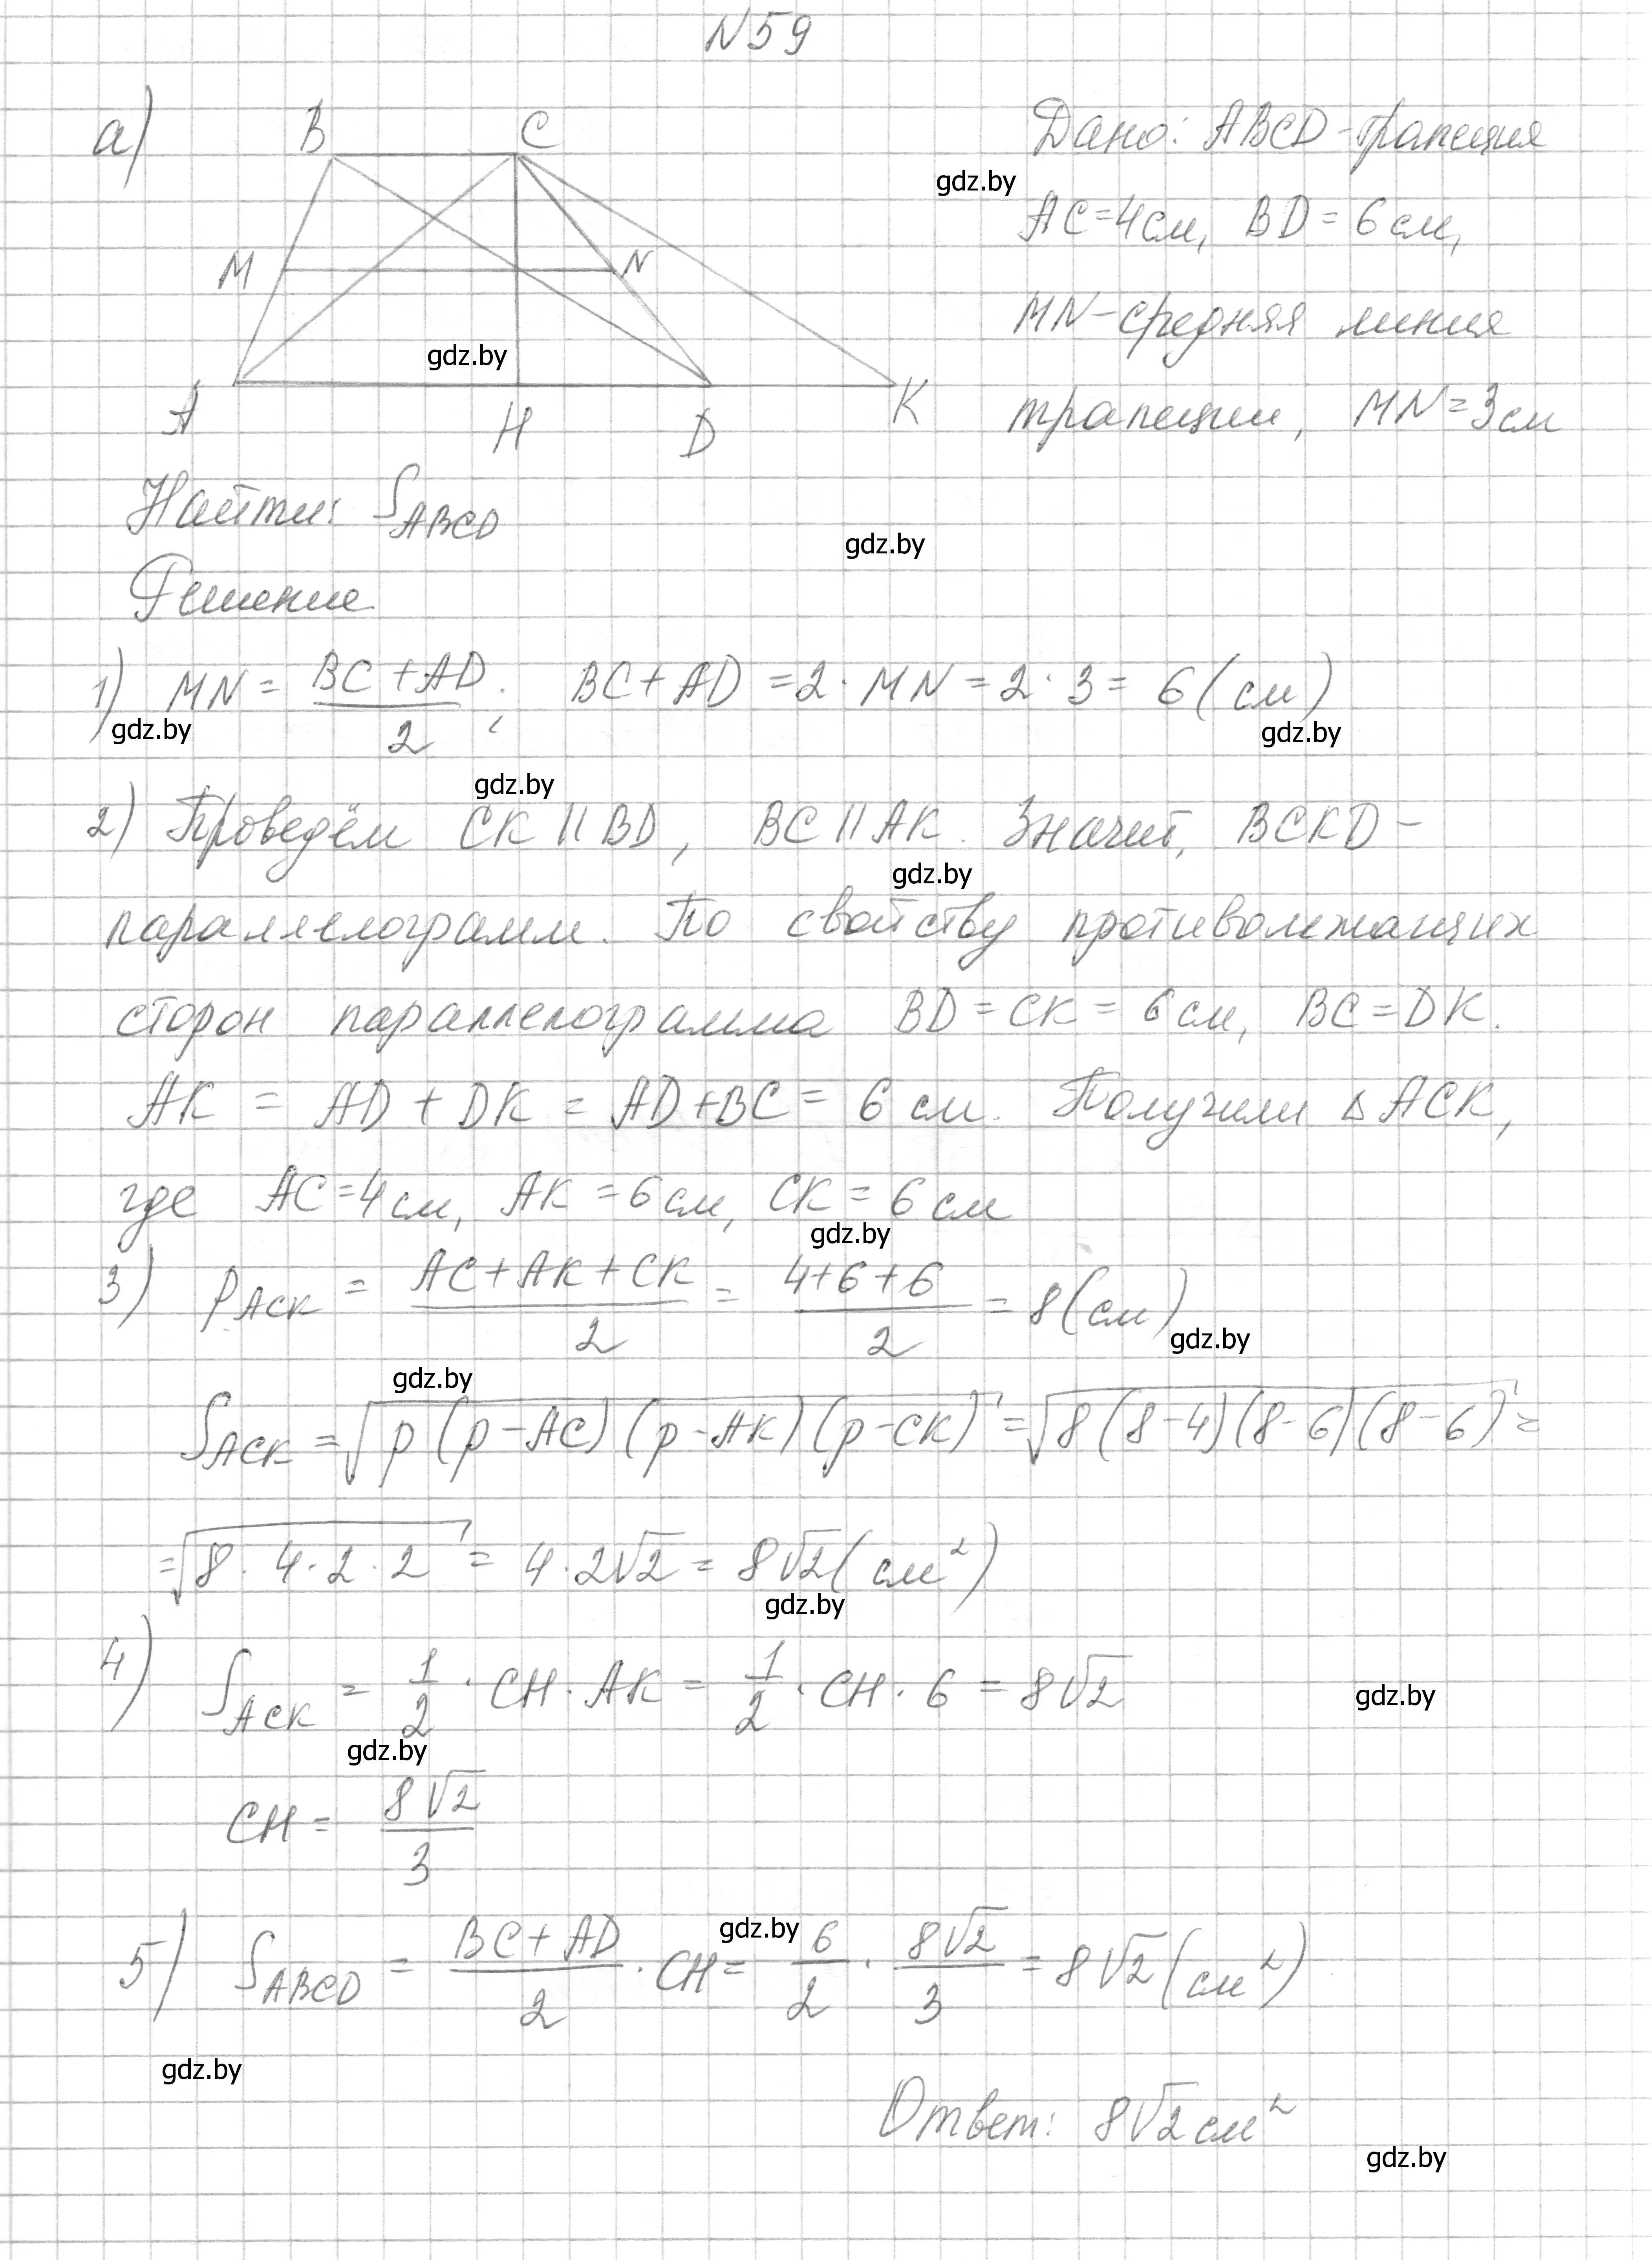 N59
а)
B C
M N
A H D K
Дано: ABCD-трапеция
gdz.by
AC=4см, BD=6см,
MN-средняя линия
трапеции, MN=3см
gdz.by
Найти: S_ABCD
gdz.by
Решение
1) MN = (BC+AD)/2; BC+AD = 2·MN = 2·3 = 6(см)
gdz.by gdz.by
gdz.by
2) Проведём CK || BD, BC || AK. Значит, BCKD -
gdz.by
параллелограмм. По свойству противолежащих
сторон параллелограмма BD = CK = 6см, BC = DK.
AK = AD + DK = AD+BC = 6 см. Получили ΔACK,
где AC=4см, AK=6см, CK=6см
gdz.by
3) p_ACK = (AC+AK+CK)/2 = (4+6+6)/2 = 8(см)
gdz.by
gdz.by
S_ACK = √(p(p-AC)(p-AK)(p-CK)) = √(8(8-4)(8-6)(8-6)) =
= √(8·4·2·2) = 4·2√2 = 8√2 (см²)
gdz.by
4) S_ACK = 1/2 · CH · AK = 1/2 · CH · 6 = 8√2
gdz.by
gdz.by
CH = 8√2/3
gdz.by
5) S_ABCD = (BC+AD)/2 · CH = 6/2 · 8√2/3 = 8√2 (см²)
gdz.by
Ответ: 8√2 см²
gdz.by